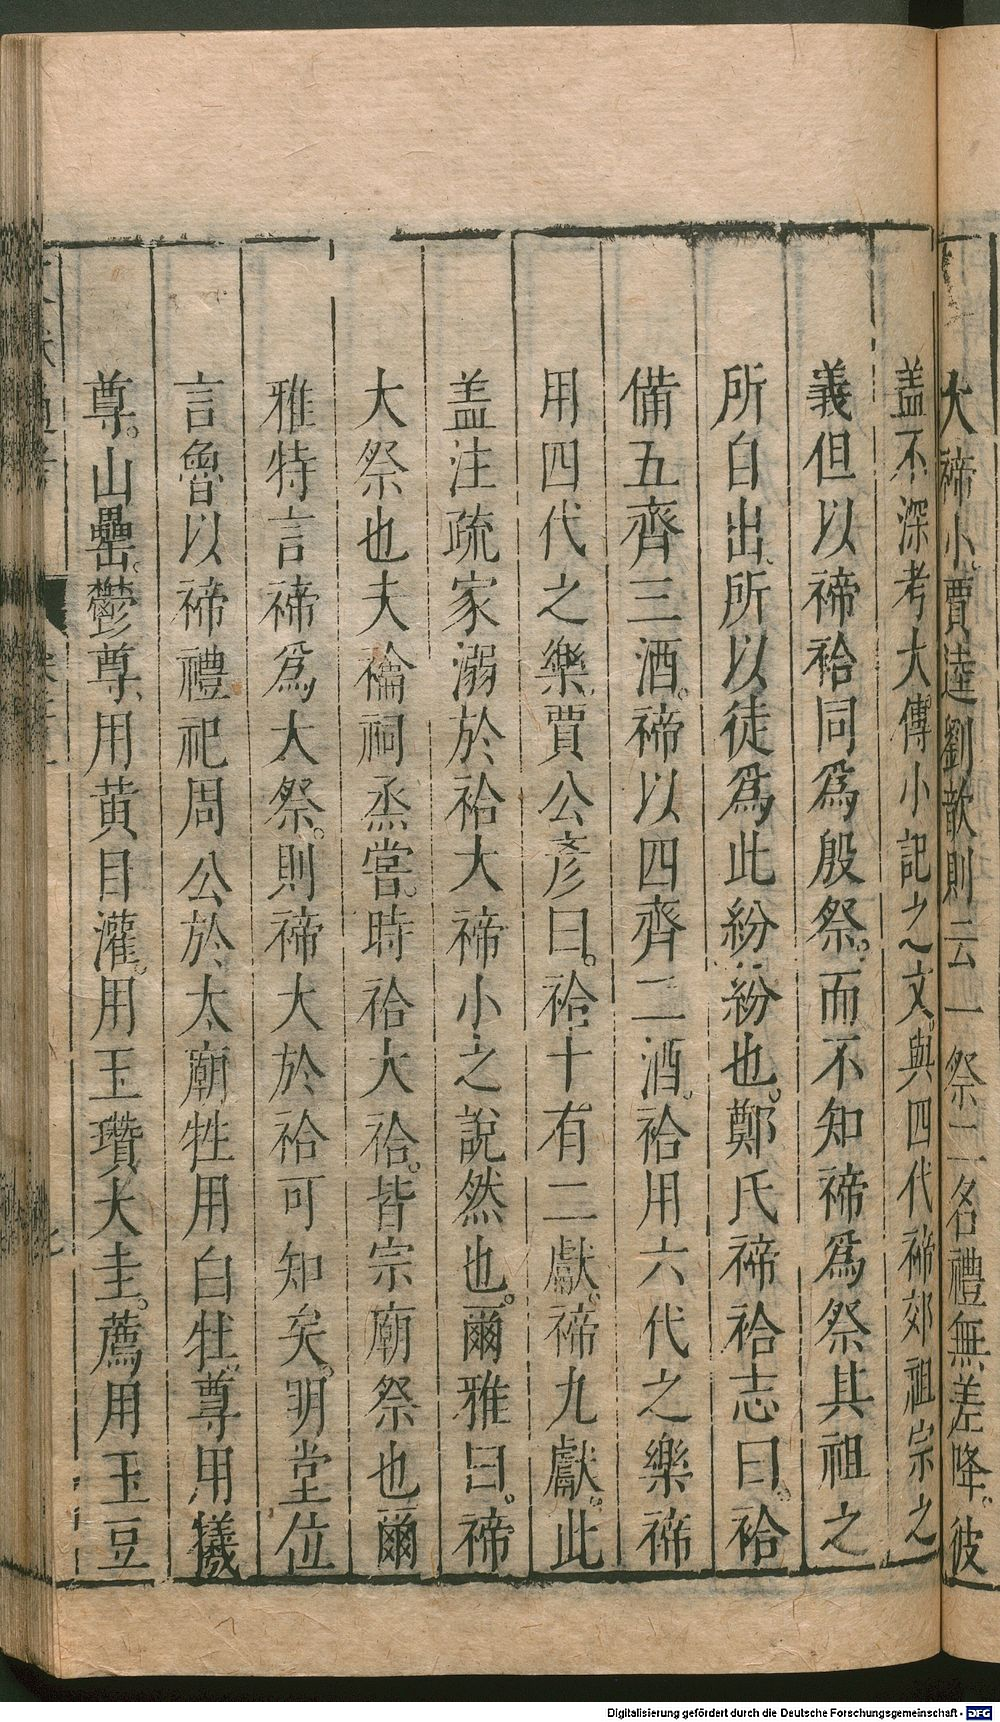 大禘小賈逵劉歆則云一祭二名禮無差降彼
盖不深考大傳小記之文與四代禘郊祖宗之
義但以禘祫同爲殷祭而不知禘爲祭其祖之
所自出所以徒爲此紛紛也鄭氏禘祫志曰祫
備五齊三酒禘以四齊二酒祫用六代之樂禘
用四代之樂賈公彥曰祫十有二獻禘九獻此
盖注疏家溺於祫大禘小之說然也爾雅曰禘
大祭也夫禴祠烝嘗時祫大祫皆宗廟祭也爾
雅特言禘爲大祭則禘大於祫可知矣明堂位
言魯以禘禮祀周公於太廟牲用白牡尊用犧
尊山罍鬱尊用黄目灌用玉瓚大圭薦用玉豆
Digitalisierung gefördert durch die Deutsche Forschungsgemeinschaft - DFG